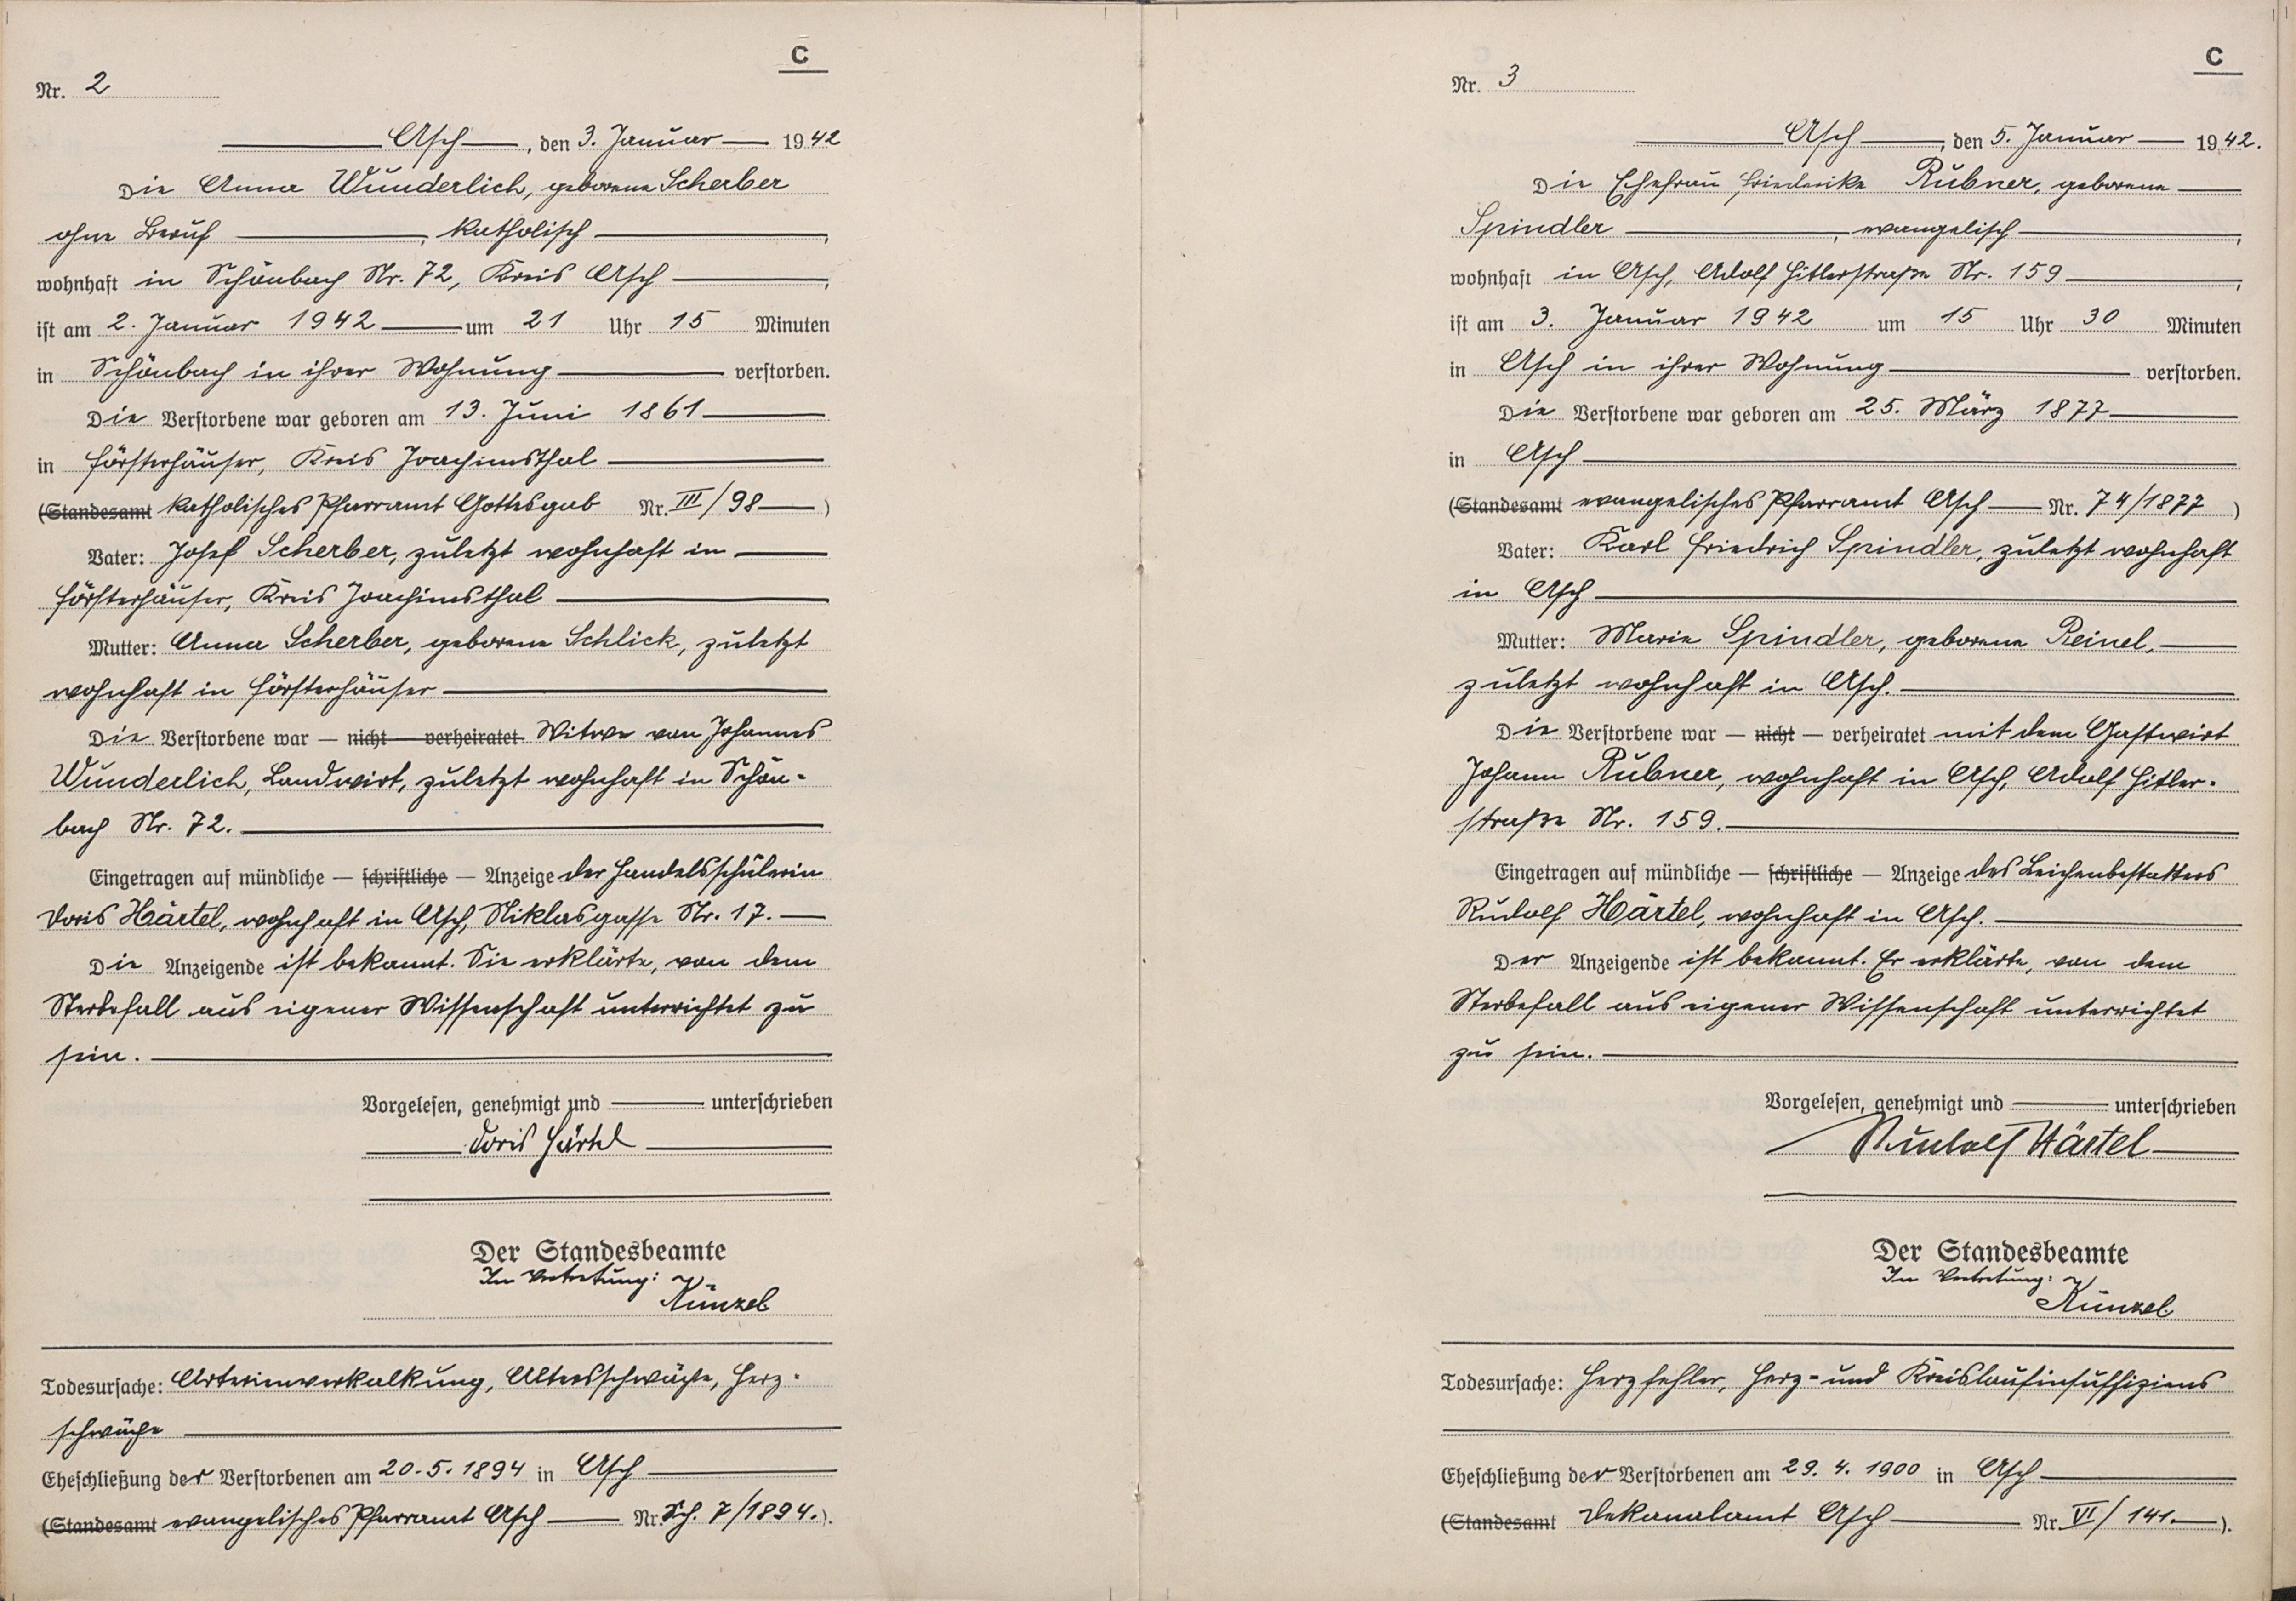 C
Nr. 2
Asch, den 3. Januar 1942
Die Anna Wunderlich, geborene Scherber
ohne Beruf, katholisch,
wohnhaft in Schönbach Nr. 72, Kreis Asch,
ist am 2. Januar 1942 um 21 Uhr 15 Minuten
in Schönbach in ihrer Wohnung verstorben.
Die Verstorbene war geboren am 13. Juni 1861
in Försterhäuser, Kreis Joachimsthal
(Standesamt katholisches Pfarramt Gottesgab Nr. III/98)
Vater: Josef Scherber, zuletzt wohnhaft in
Försterhäuser, Kreis Joachimsthal
Mutter: Anna Scherber, geborene Schlick, zuletzt
wohnhaft in Försterhäuser
Die Verstorbene war — nicht — verheiratet Witwe von Johannes
Wunderlich, Landwirt, zuletzt wohnhaft in Schön-
bach Nr. 72.
Eingetragen auf mündliche — schriftliche — Anzeige der Handelsschülerin
Doris Härtel, wohnhaft in Asch, Niklasgasse Nr. 17.
Die Anzeigende ist bekannt. Sie erklärte, von dem
Sterbefall aus eigener Wissenschaft unterrichtet zu
sein.
Vorgelesen, genehmigt und unterschrieben
Doris Härtel
Der Standesbeamte
In Vertretung:
Künzel
Todesursache: Arterienverkalkung, Altersschwäche, Herz-
schwäche
Eheschließung der Verstorbenen am 20.5.1894 in Asch
(Standesamt evangelisches Pfarramt Asch Nr. Sch. 7/1894.).
C
Nr. 3
Asch, den 5. Januar 1942.
Die Ehefrau Friederike Rubner, geborene
Spindler, evangelisch,
wohnhaft in Asch, Adolf Hitlerstraße Nr. 159,
ist am 3. Januar 1942 um 15 Uhr 30 Minuten
in Asch in ihrer Wohnung verstorben.
Die Verstorbene war geboren am 25. März 1877
in Asch
(Standesamt evangelisches Pfarramt Asch Nr. 74/1877)
Vater: Karl Friedrich Spindler, zuletzt wohnhaft
in Asch
Mutter: Marie Spindler, geborene Reinel,
zuletzt wohnhaft in Asch.
Die Verstorbene war — nicht — verheiratet mit dem Gastwirt
Johann Rubner, wohnhaft in Asch, Adolf Hitler-
straße Nr. 159.
Eingetragen auf mündliche — schriftliche — Anzeige des Leichenbestatters
Rudolf Härtel, wohnhaft in Asch.
Der Anzeigende ist bekannt. Er erklärte, von dem
Sterbefall aus eigener Wissenschaft unterrichtet
zu sein.
Vorgelesen, genehmigt und unterschrieben
Rudolf Härtel
Der Standesbeamte
In Vertretung:
Künzel
Todesursache: Herzfehler, Herz- und Kreislaufinsuffiziens
Eheschließung der Verstorbenen am 29.4.1900 in Asch
(Standesamt Dekanalamt Asch Nr. VI/141.).